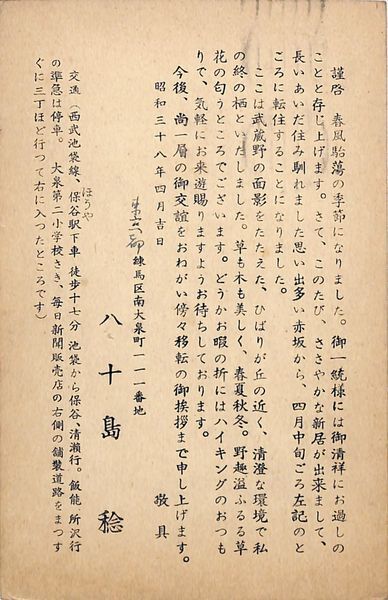 謹啓　春風駘蕩の季節になりました。御一統様には御清祥にお過しの
ことと存じ上げます。さて、このたび、ささやかな新居が出来まして、
長いあいだ住み馴れました思い出多い赤坂から、四月中旬ごろ左記のと
ころに転住することになりました。
ここは武蔵野の面影をたたえた、ひばりが丘の近く、清澄な環境で私
の終の栖といたしました。草も木も美しく、春夏秋冬。野趣溢ふるる草
花の匂うところでございます。どうかお暇の折にはハイキングのおつも
りで、気軽にお来遊賜りますようお待ちしております。
今後、尚一層の御交誼をおねがい傍々移転の御挨拶まで申し上げます。
敬具
昭和三十八年四月吉日
練馬区南大泉町一一一番地
八十島　稔
交通（西武池袋線、保谷駅下車　徒歩十七分　池袋から保谷、清瀬行。飯能　所沢行
ほうや
の準急は停車。　大泉第二小学校さき、毎日新聞販売店の右側の舗装道路をまっす
ぐに三丁ほど行って右に入ったところです）